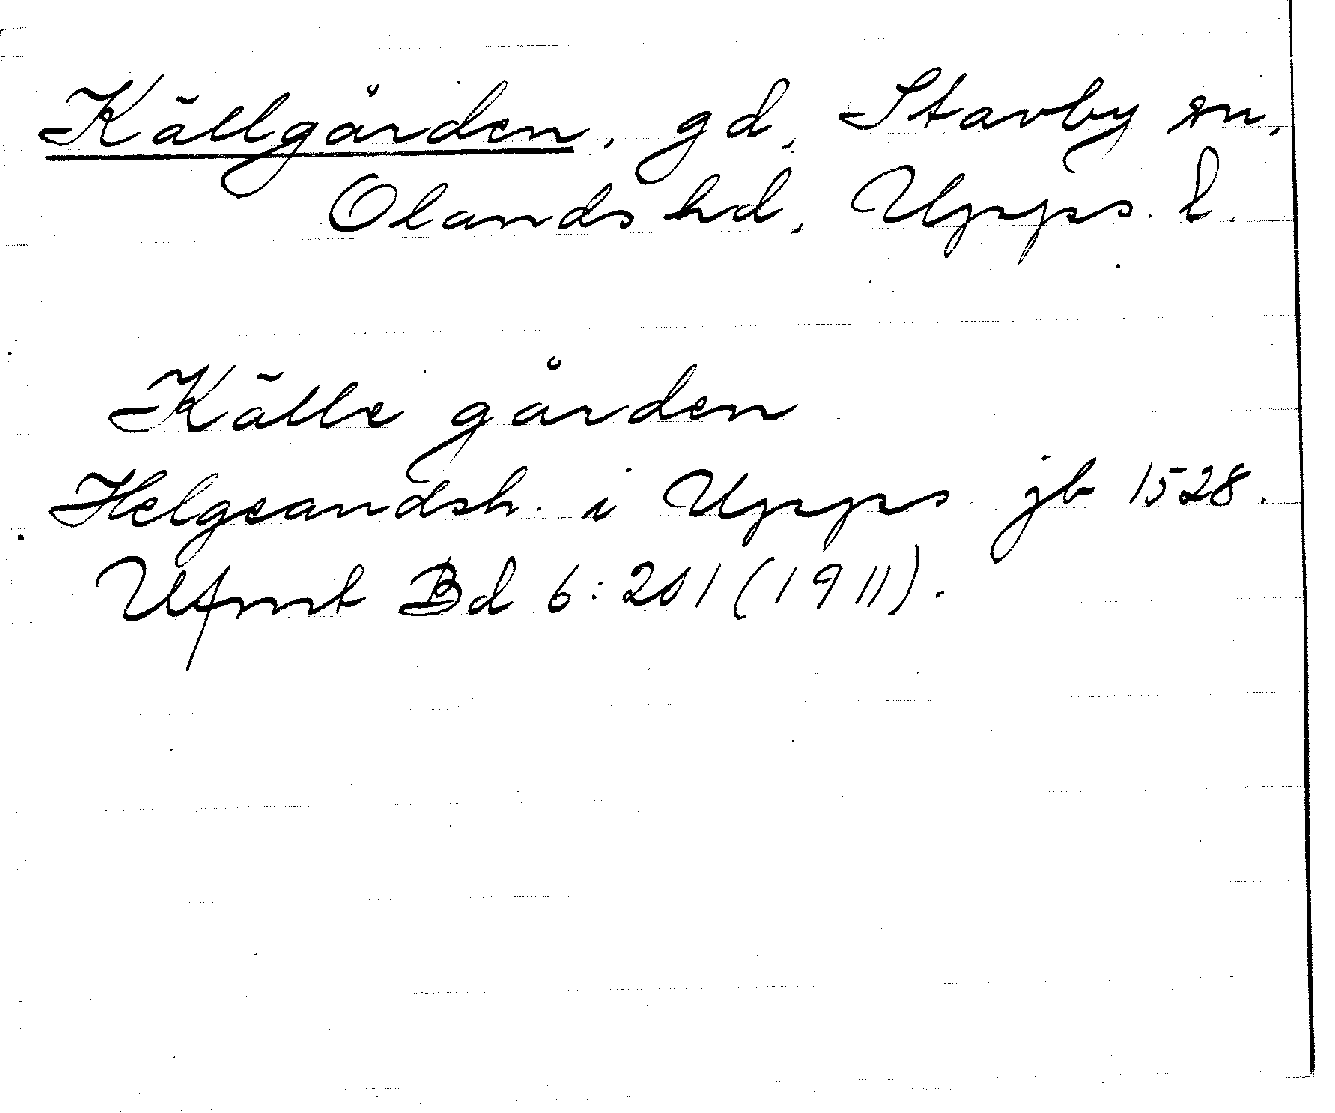 Källgården, gd, Stavby sn,
Olands hd, Upps. l.
Källe gården
Helgeandsh. i Upps jb 1528.
Ufmt Bd 6:201 (1911).